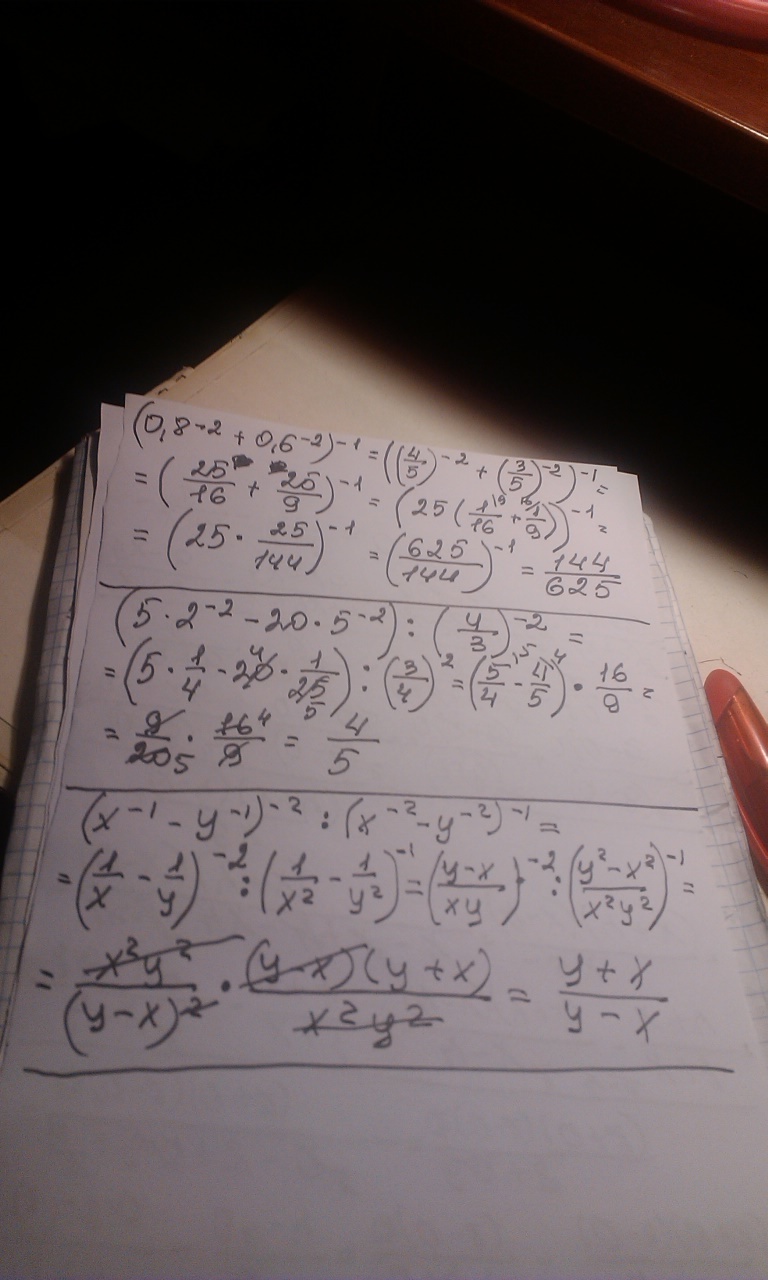 (0,8⁻² + 0,6⁻²)⁻¹ = ((4/5)⁻² + (3/5)⁻²)⁻¹ =
= (25/16 + 25/9)⁻¹ = (25(1/16 + 1/9))⁻¹ =
= (25 · 25/144)⁻¹ = (625/144)⁻¹ = 144/625
(5 · 2⁻² - 20 · 5⁻²) : (4/3)⁻² =
= (5 · 1/4 - 20 · 1/25) : (3/4)² = (5/4 - 4/5) · 16/9 =
= 9/20 · 16/9 = 4/5
(x⁻¹ - y⁻¹)⁻² : (x⁻² - y⁻²)⁻¹ =
= (1/x - 1/y)⁻² : (1/x² - 1/y²)⁻¹ = (y-x/xy)⁻² : (y²-x²/x²y²)⁻¹ =
= x²y²/(y-x)² · (y-x)(y+x)/x²y² = y+x/y-x